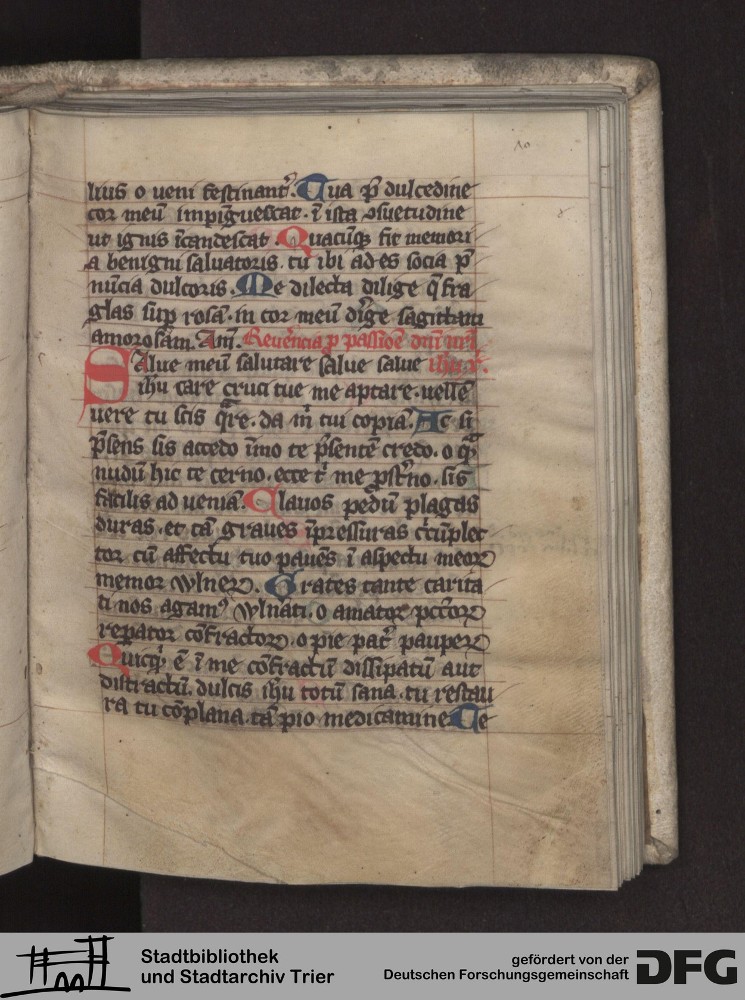 10
lius o ueni festinanť. Tua p̃ dulcedine
cor meũ impiguescat. ĩ ista ꝯsuetudine
ut ignis ĩcandescat. Quacũqꝫ fit memori
a benigni saluatoris. tu ibi ad es socia p̃
nũcia dulcoris. Me dilecta dilige q̃ fra
glas sup rosã. in cor meũ dige sagittam
amorosam. Am̃. Reuerẽcia p passiõe dñi nr̃i
Salue meũ salutare salue salue ihu xp̃.
ihu care cruci tue me aptare. uellẽ
uere tu scis q̃re. da m̃ tui copiã. Ac si
p̃sens sis accedo ĩmo te p̃sentẽ credo. o q̃
nudũ hic te cerno. ecce t̃ me ꝓst̃no. sis
facilis ad ueniã. Clauos pedũ plagas
duras. et tã graues ĩpressuras ccũplec
tor cũ affectu tuo pauẽs ĩ aspectu meoꝝ
memor wlneꝝ. Grates tante carita
ti nos agam⁹ wlñati. o amator pccõꝝ
repator cõfractoꝝ. o pie pat̃ paupeꝝ
Quicq̃ ẽ ĩ me cõfractũ dissipatũ aut
distractũ. dulcis ihu totũ sana. tu restau
ra tu cõplana. tã pio medicamine Te
Stadtbibliothek
und Stadtarchiv Trier
gefördert von der
Deutschen Forschungsgemeinschaft
DFG